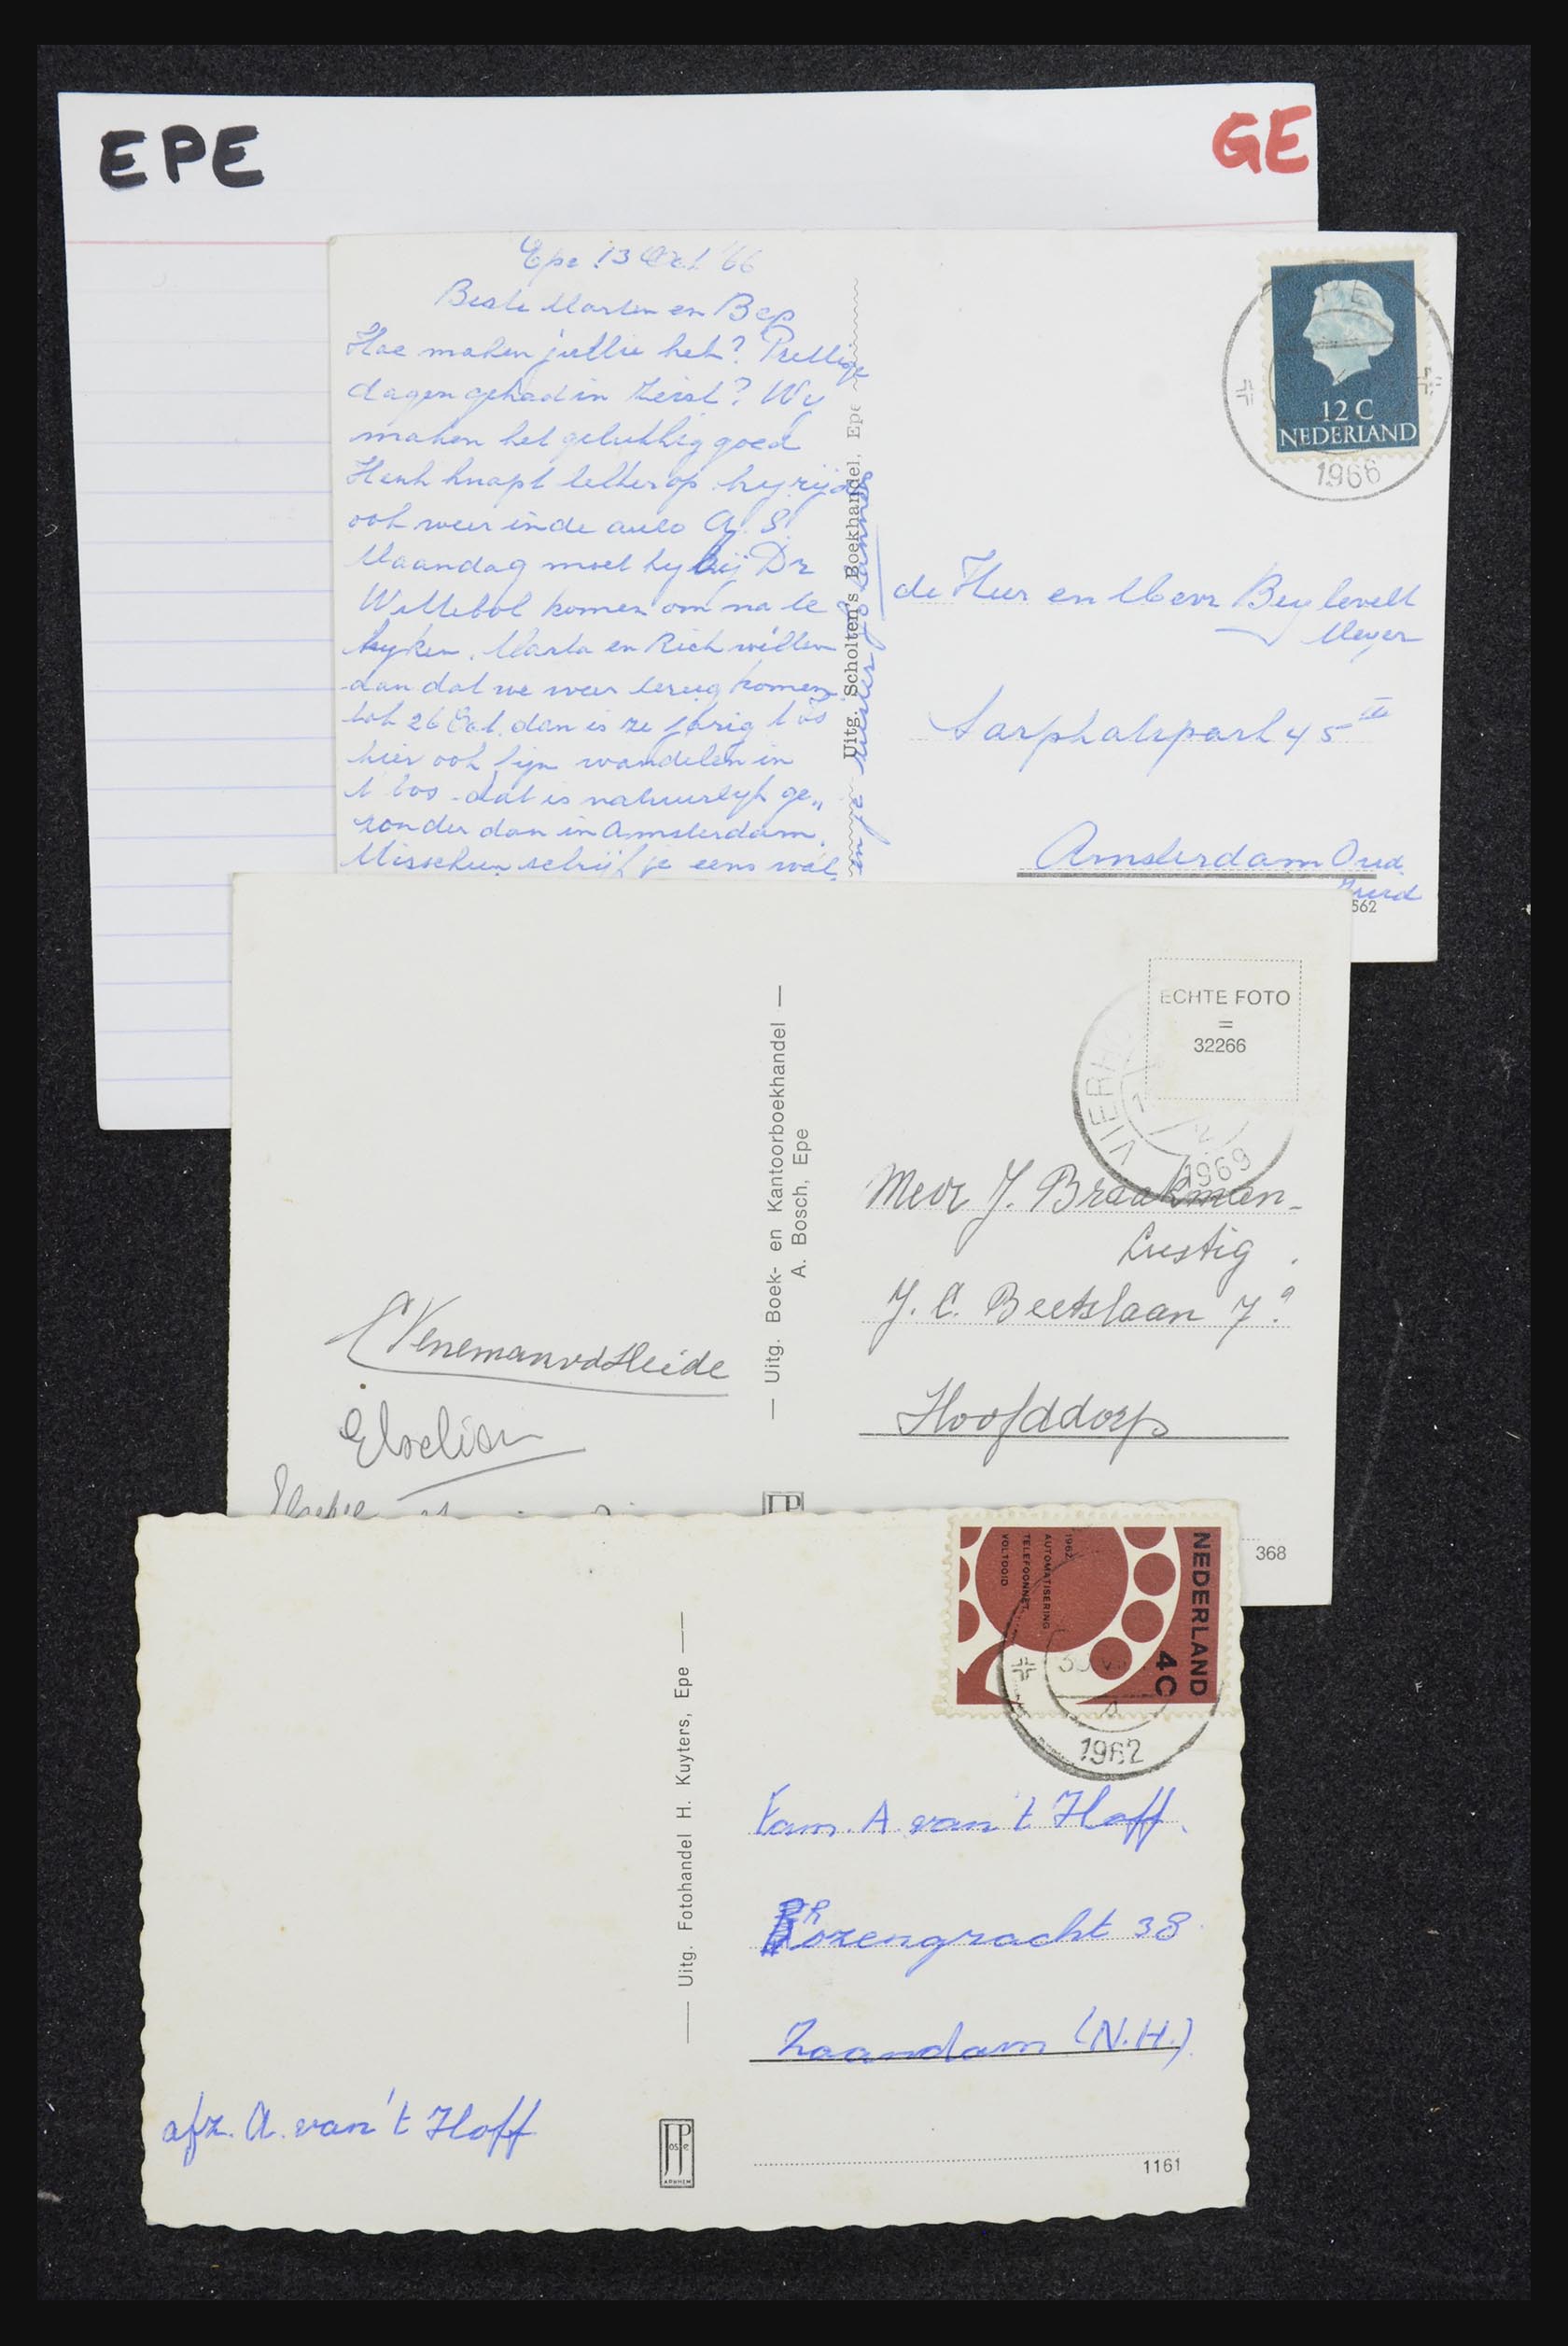 EPE
GE
Epe 13 Oct '66
Beste Marten en Bep
Hoe maken jullie het? Prettige
dagen gehad in Zeist? Wy
maken het gelukkig goed
Henk knapt lekker op hy rijdt
ook weer in de auto A.S.
Maandag moet hy bij Dr
komen om na te
kyken. Marta en Rich willen
dan dat we weer terug komen
tot 26 Oct. dan is ze jarig t is
hier ook fijn wandelen in
t bos dat is natuurlyk ge„
zonder dan in Amsterdam.
Misschien schrijf je eens wat
Uitg. Scholten's Boekhandel, Epe
12 C
NEDERLAND
1966
de Heer en Mevr Beylevelt
Meyer
Sarphatipark 45 III
Amsterdam Oud
Zuid
562
ECHTE FOTO
=
32266
VIERHO
1969
— Uitg. Boek- en Kantoorboekhandel —
A. Bosch, Epe
Mevr J. Braakman-
Lustig.
J. C. Beetslaan 7
Hoofddorp
Venemanvd Heide
368
NEDERLAND
4C
1962
AUTOMATISERING
TELEFOONNET
VOLTOOID
1962
Uitg. Fotohandel H. Kuyters, Epe
Fam. A van 't Hoff.
Rozengracht 38
Zaandam (N.H.)
afz. A. van 't Hoff
JosPe
ARNHEM
1161